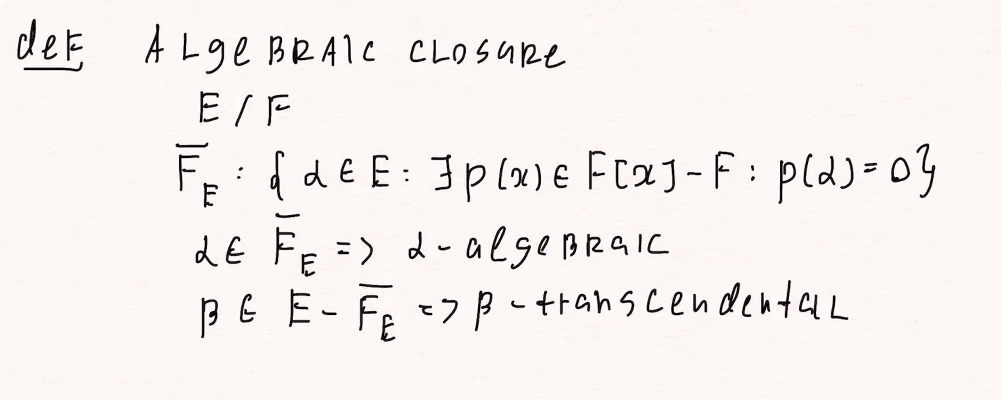 def ALgeBRAIC CLOSURE
E / F
F̅_E : { α ∈ E : ∃ p(x) ∈ F[x] - F : p(α) = 0 }
α ∈ F̅_E => α - algeBRaIC
β ∈ E - F̅_E => β - transcendentaL